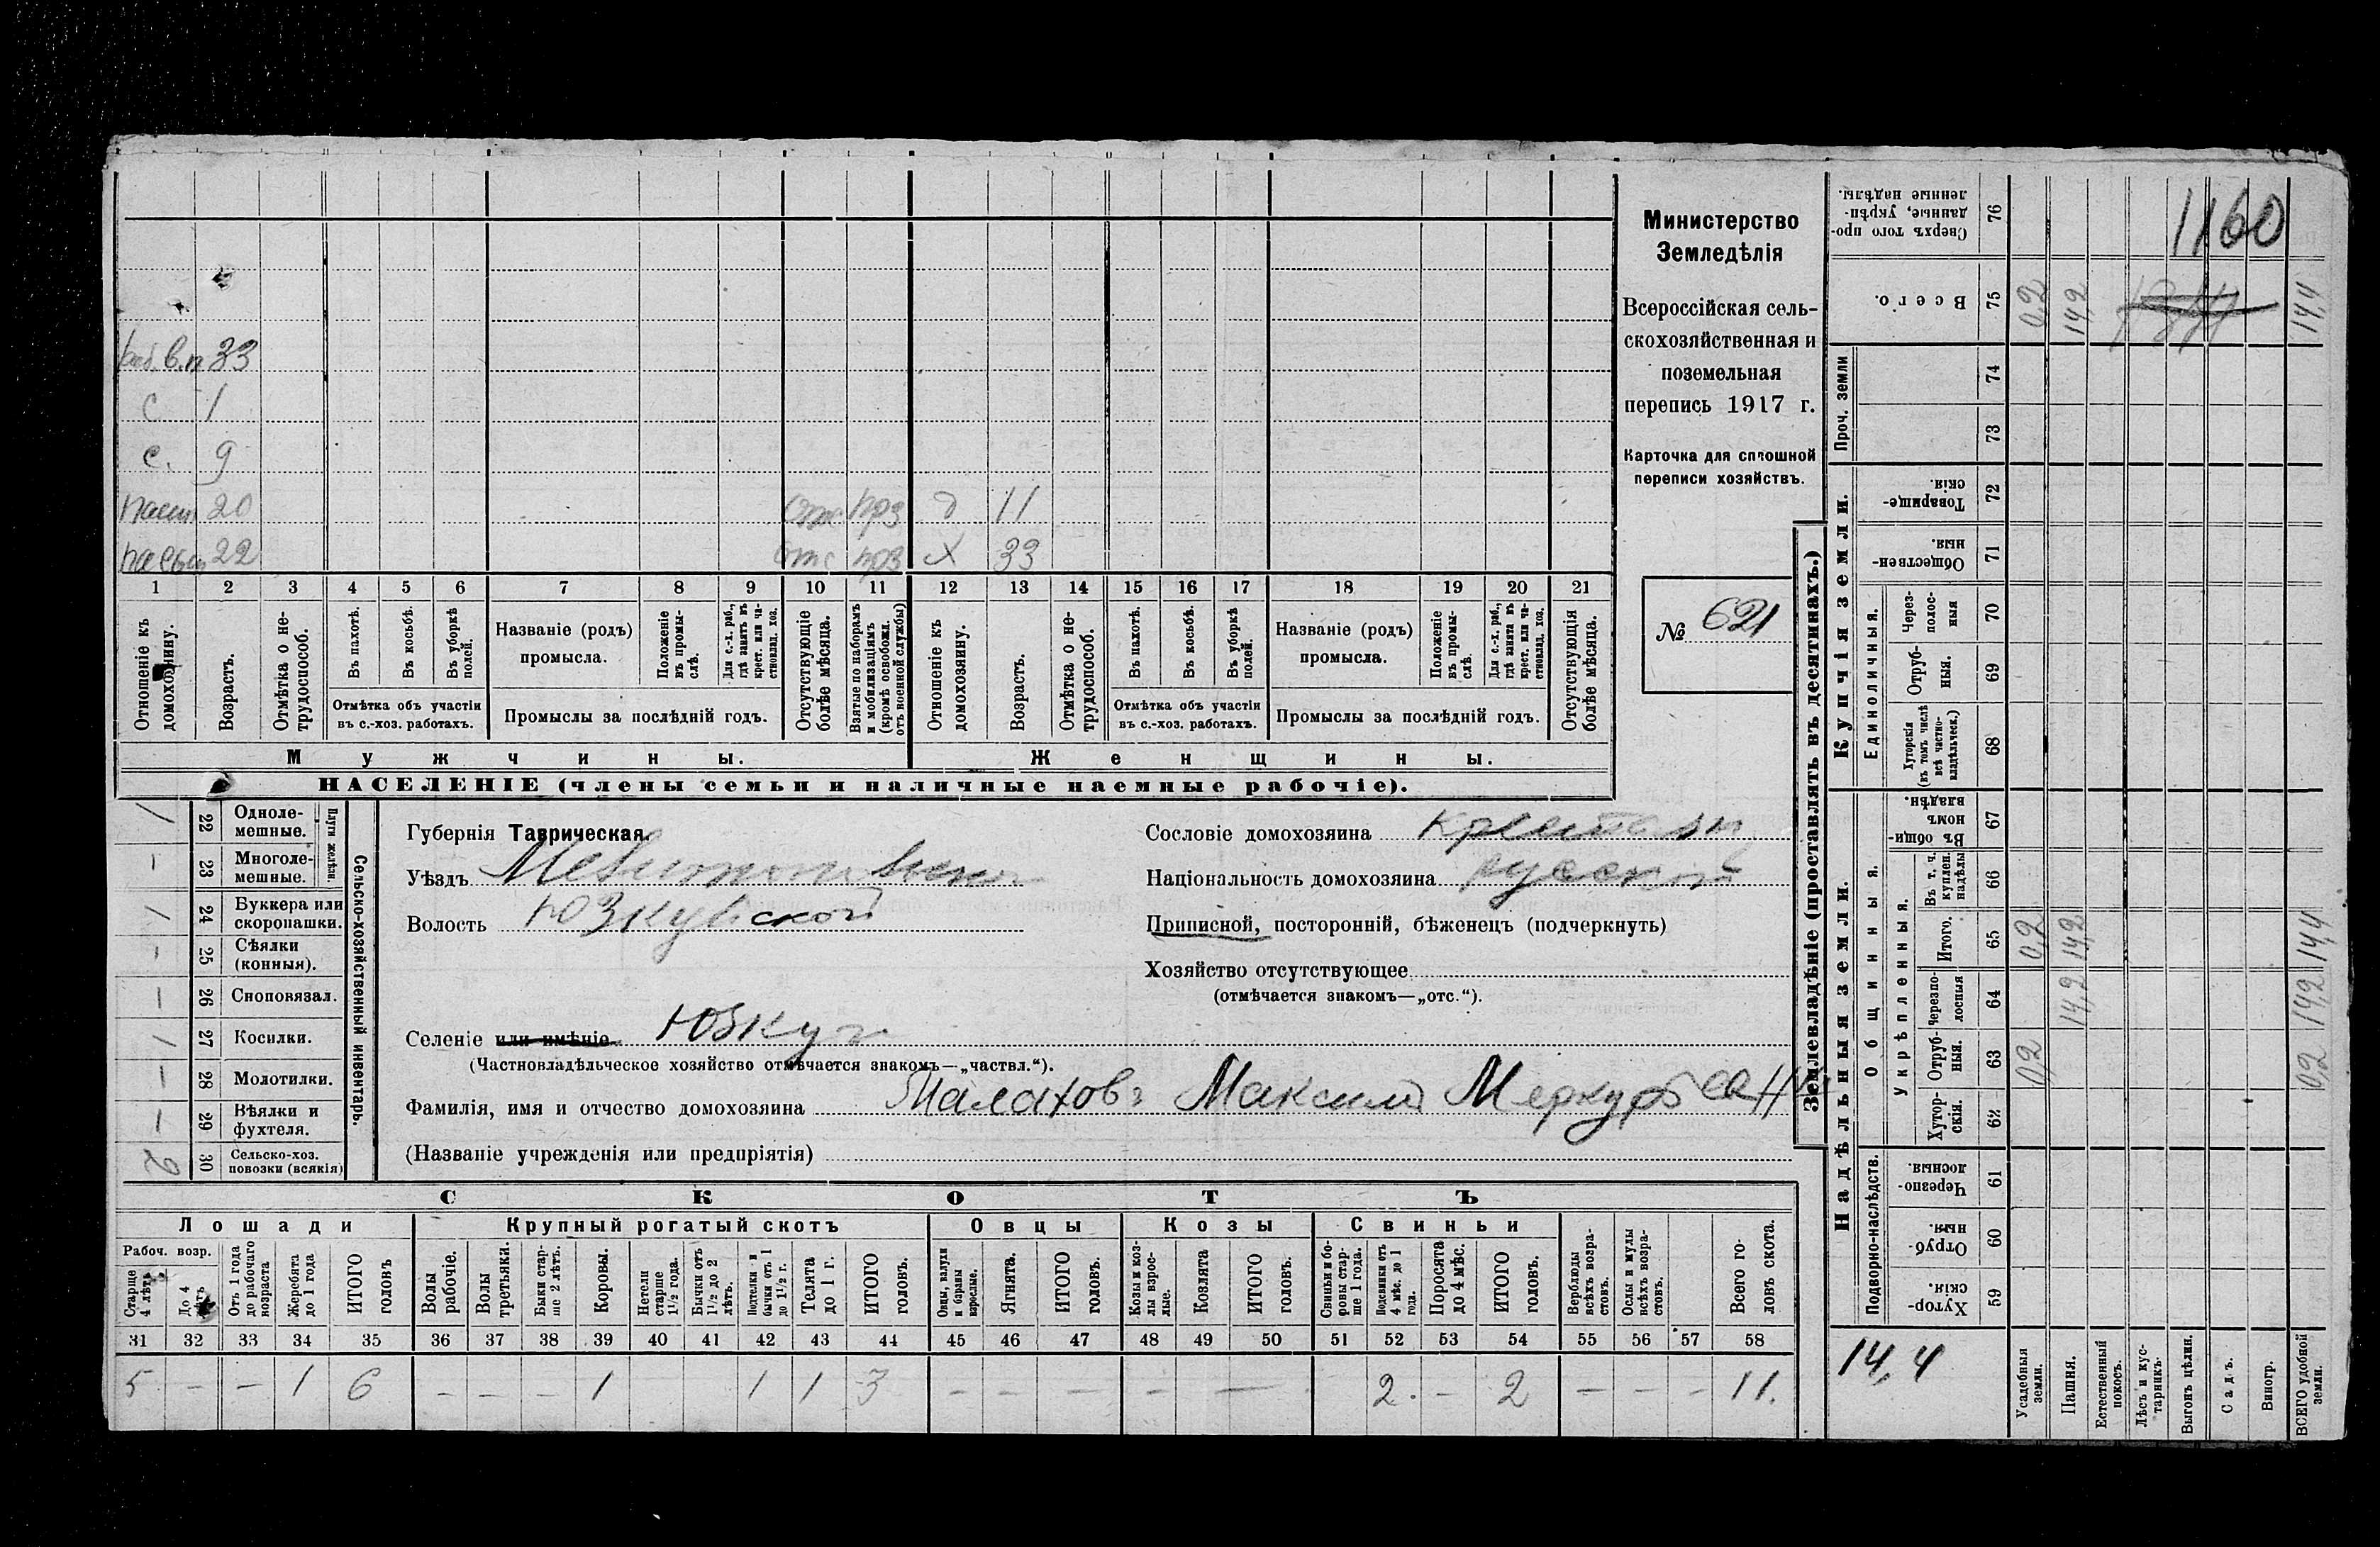 раб. в.п 33
с 1
с. 9
паст 20 отс прз д 11
22 отс прз х 33
1 2 3 4 5 6 7 8 9 10 11 12 13 14 15 16 17 18 19 20 21
Отношеніе къ домохозяину.
Возрастъ.
Отмѣтка о не-трудоспособ.
Въ пахотѣ.
Въ косьбѣ.
Въ уборкѣ полей.
Отмѣтка объ участіи
въ с.-хоз. работахъ.
Названіе (родъ)
промысла.
Положеніе въ промы-слѣ.
Для с.-х. раб., гдѣ занятъ въ крест. или ча-стновлад. хоз.
Промыслы за послѣдній годъ.
Отсутствующіе болѣе мѣсяца.
Взятые по наборамъ и мобилизаціямъ (кромѣ освобожд. отъ военной службы)
Отношеніе къ домохозяину.
Возрастъ.
Отмѣтка о не-трудоспособ.
Въ пахотѣ.
Въ косьбѣ.
Въ уборкѣ полей.
Отмѣтка объ участіи
въ с.-хоз. работахъ.
Названіе (родъ)
промысла.
Положеніе въ промы-слѣ.
Для с.-х. раб., гдѣ занята въ крест. или ча-стновлад. хоз.
Промыслы за послѣдній годъ.
Отсутствующія болѣе мѣсяца.
Мужчины. Женщины.
НАСЕЛЕНІЕ (члены семьи и наличные наемные рабочіе).
Министерство
Земледѣлія
Всероссійская сель-
скохозяйственная и
поземельная
перепись 1917 г.
Карточка для сплошной
переписи хозяйствъ.
№ 621
Сельско-хозяйственный инвентарь.
Плуги желѣзн.
/ 22 Одноле-мешные.
– 23 Многоле-мешные.
/ 24 Буккера или скоропашки.
- 25 Сѣялки (конныя).
– 26 Сноповязал.
/ 27 Косилки.
– 28 Молотилки.
– 29 Вѣялки и фухтеля.
2 30 Сельско-хоз. повозки (всякія)
Губернія Таврическая.
Уѣздъ
Волость Юзкуйской
Селеніе или имѣніе Юзкуи
(Частновладѣльческое хозяйство отмѣчается знакомъ—„частвл.“).
Фамилія, имя и отчество домохозяина Малаховъ Максимъ
(Названіе учрежденія или предпріятія)
Сословіе домохозяина
Національность домохозяина русский
Приписной, посторонній, бѣженецъ (подчеркнуть)
Хозяйство отсутствующее
(отмѣчается знакомъ—„отс.“).
СКОТЪ
Лошади Крупный рогатый скотъ Овцы Козы Свиньи
Рабоч. возр.
Старше 4 лѣтъ
До 4 лѣтъ
Отъ 1 года до рабочаго возраста
Жеребята до 1 года
ИТОГО головъ
Волы рабочіе.
Волы третьяки.
Быки стар-ше 2 лѣтъ.
Коровы.
Нетели старше 1½ года.
Бычки отъ 1½ до 2 лѣтъ.
Подтелки и бычки отъ 1 до 1½ г.
Телята до 1 г.
ИТОГО головъ.
Овцы, валухи и бараны взрослые.
Ягнята.
ИТОГО головъ.
Козы и коз-лы взрос-лые.
Козлята
ИТОГО головъ.
Свиньи и бо-ровы стар-ше 1 года.
Подсвинки отъ 4 мѣс. до 1 года.
Поросята до 4 мѣс.
ИТОГО головъ.
Верблюды всѣхъ возра-стовъ.
Ослы и мулы всѣхъ возра-стовъ.
Всего го-ловъ скота.
31 32 33 34 35 36 37 38 39 40 41 42 43 44 45 46 47 48 49 50 51 52 53 54 55 56 57 58
5 – – 1 6 – – – 1 1 1 3 – – – – — 2. – 2 – – – 11.
Землевладѣніе (проставлять въ десятинахъ.)
Надѣльныя земли.
Купчія земли.
Проч. земли
Подворно-наслѣдств.
Общинныя.
Укрѣпленныя.
Единоличныя.
Сверхъ того про-данные, укрѣп-ленные надѣлы. 76
Всего. 75 0,2 14,2 14,4
74
73
Товарище-скія. 72
Обществен-ныя. 71
Через-полос-ныя 70
Отруб-ныя. 69
Хуторскія (въ томъ числѣ всѣ частно-владѣльческ.) 68
Въ общи-номъ владѣн. 67
Въ т. ч. куплен. надѣлы 66
Итого. 65 0,2 14,2 14,4
Черезпо-лосныя 64 14,2 14,2
Отруб-ныя. 63 0,2 0,2
Хутор-скія. 62
Черезпо-лосныя. 61
Отруб-ныя. 60
Хутор-скія. 59
1160
14,4
Усадебныя земли.
Пашня.
Естественный покосъ.
Лѣсъ и кус-тарникъ.
Выгонъ цѣлин.
Садъ.
Виногр.
ВСЕГО удобной земли.